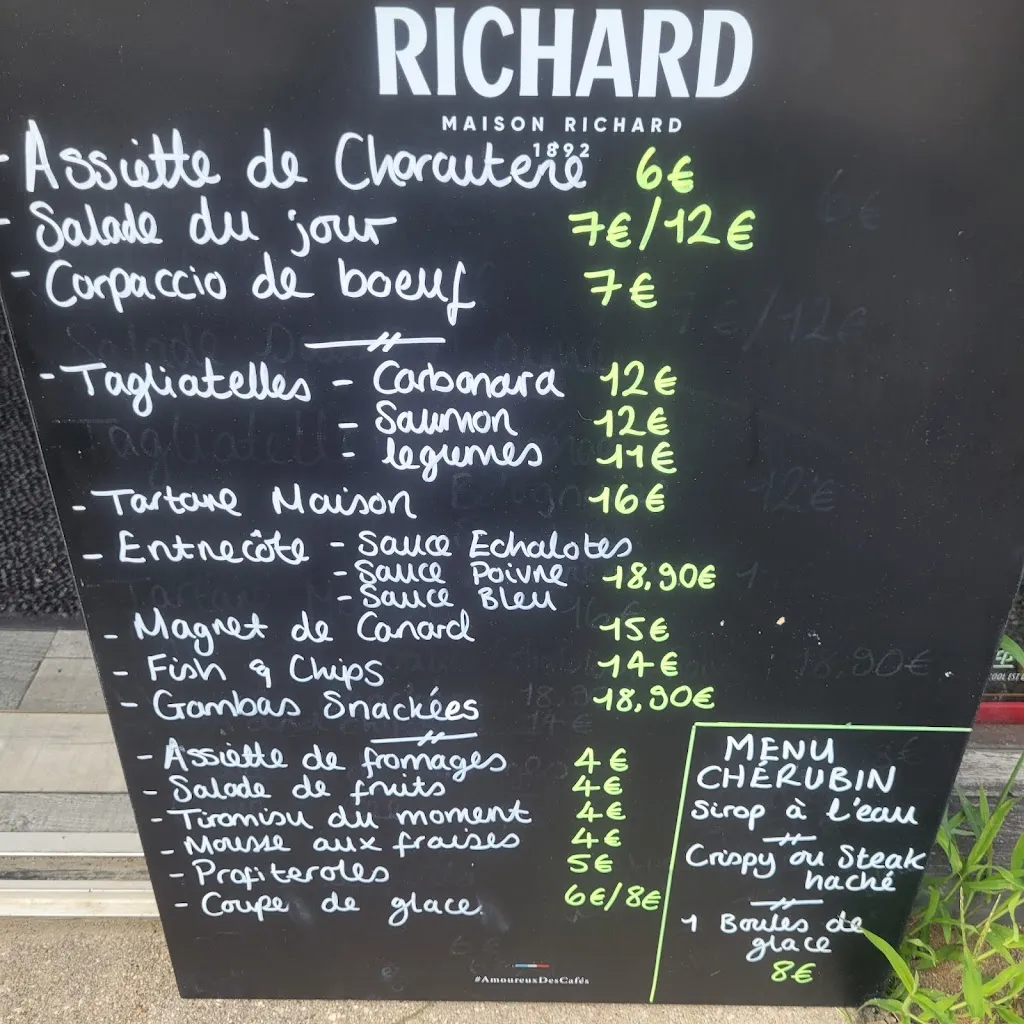 RICHARD
MAISON RICHARD
1892
- Assiette de Charcuterie 6€
- Salade du jour 7€/12€
- Carpaccio de boeuf 7€
- Tagliatelles - Carbonara 12€
- Saumon 12€
- legumes 11€
- Tartare Maison 16€
- Entrecôte - Sauce Echalotes
- Sauce Poivre 18,90€
- Sauce Bleu
- Magret de Canard 15€
- Fish & Chips 14€
- Gambas Snackées 18,90€
- Assiette de fromages 4€
- Salade de fruits 4€
- Tiramisu du moment 4€
- Mousse aux fraises 4€
- Profiteroles 5€
- Coupe de glace 6€/8€
MENU
CHÉRUBIN
Sirop à l'eau
Crispy ou Steak
haché
1 Boules de
glace
8€
#AmoureuxDesCafés